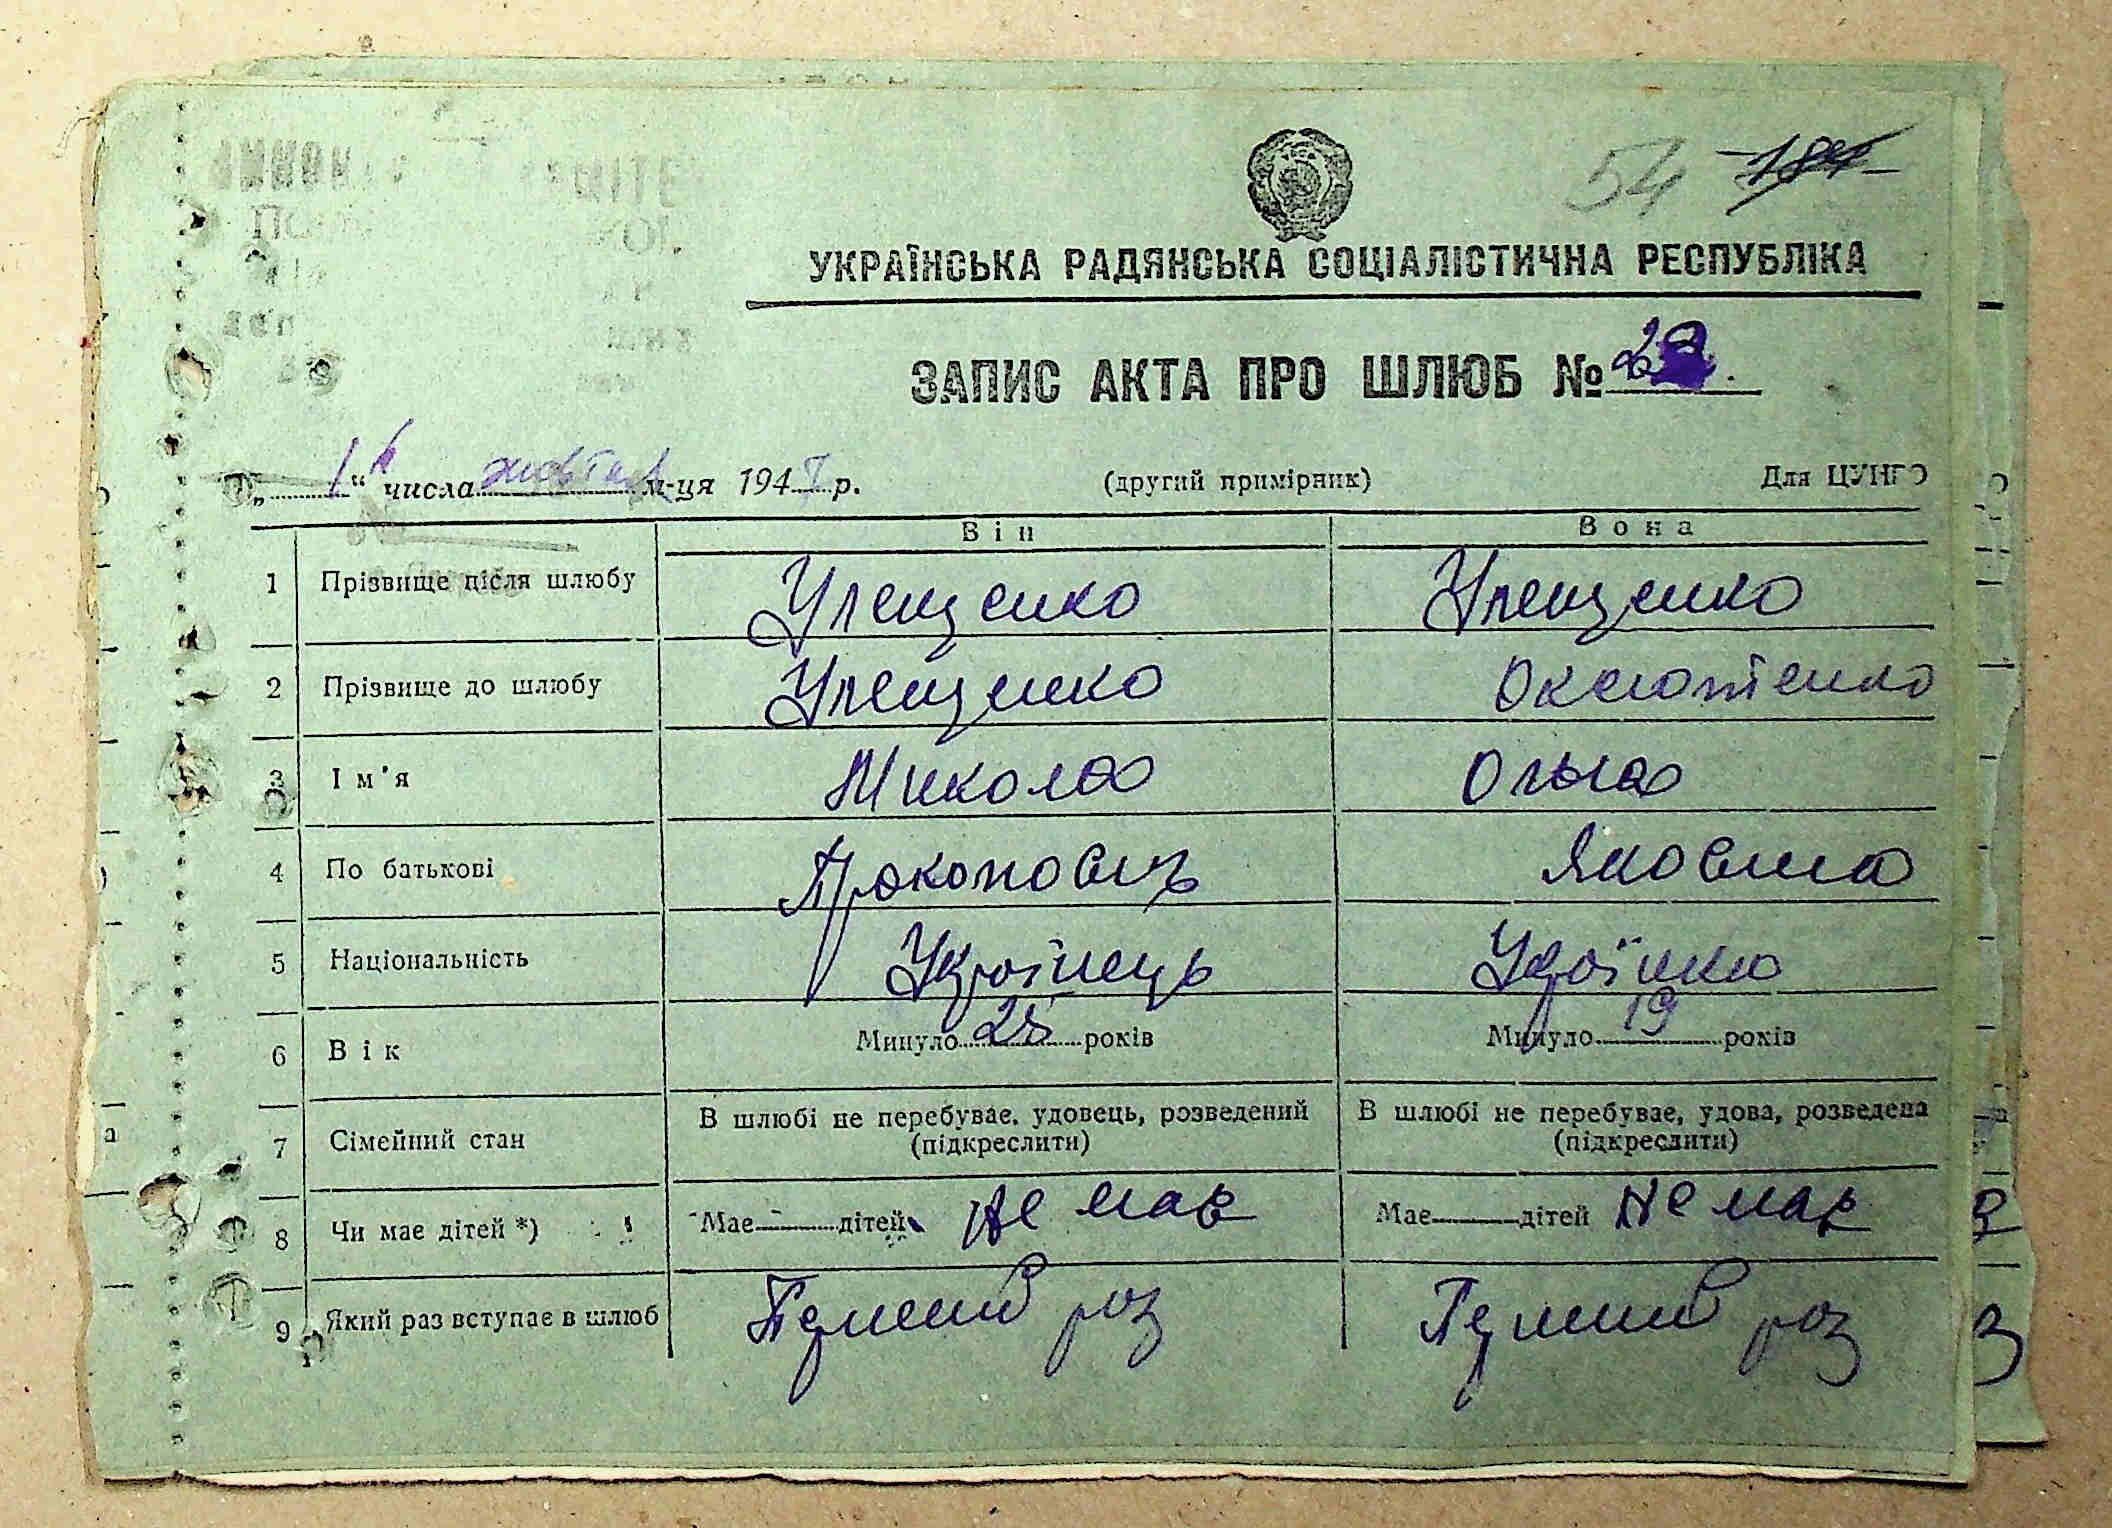 54 184
УКРАЇНСЬКА РАДЯНСЬКА СОЦІАЛІСТИЧНА РЕСПУБЛІКА
ЗАПИС АКТА ПРО ШЛЮБ №
„ “ числа м-ця 194 р. (другий примірник) Для ЦУНГО
Він Вона
1 Прізвище після шлюбу Улещенко Улещенко
2 Прізвище до шлюбу Улещенко Оксютенко
3 Ім'я Микола Ольга
4 По батькові Прокопович Яковина
5 Національність Українець Українка
6 Вік Минуло 28 років Минуло 19 років
7 Сімейний стан В шлюбі не перебуває, удовець, розведений В шлюбі не перебуває, удова, розведена
(підкреслити) (підкреслити)
8 Чи має дітей *) Має дітей не має Має дітей не має
9 Який раз вступає в шлюб Перший раз Перший раз